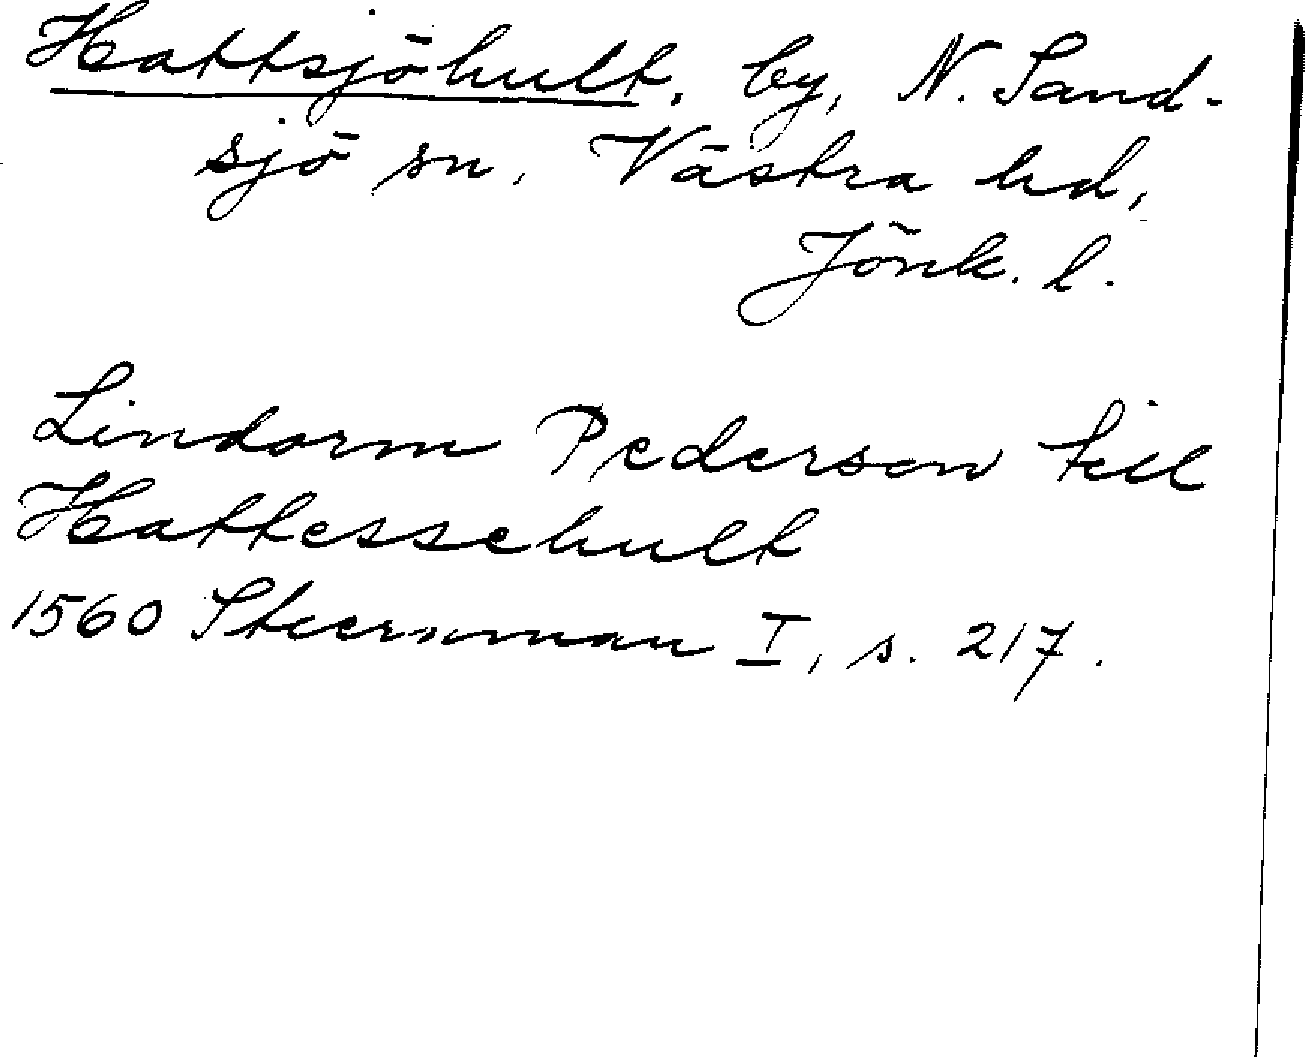 Hattsjöhult, by, N. Sand-
sjö sn, Västra hd,
Jönk. l.
Lindorm Pederson till
Hattesschult
1560 Stiernman I, s. 217.